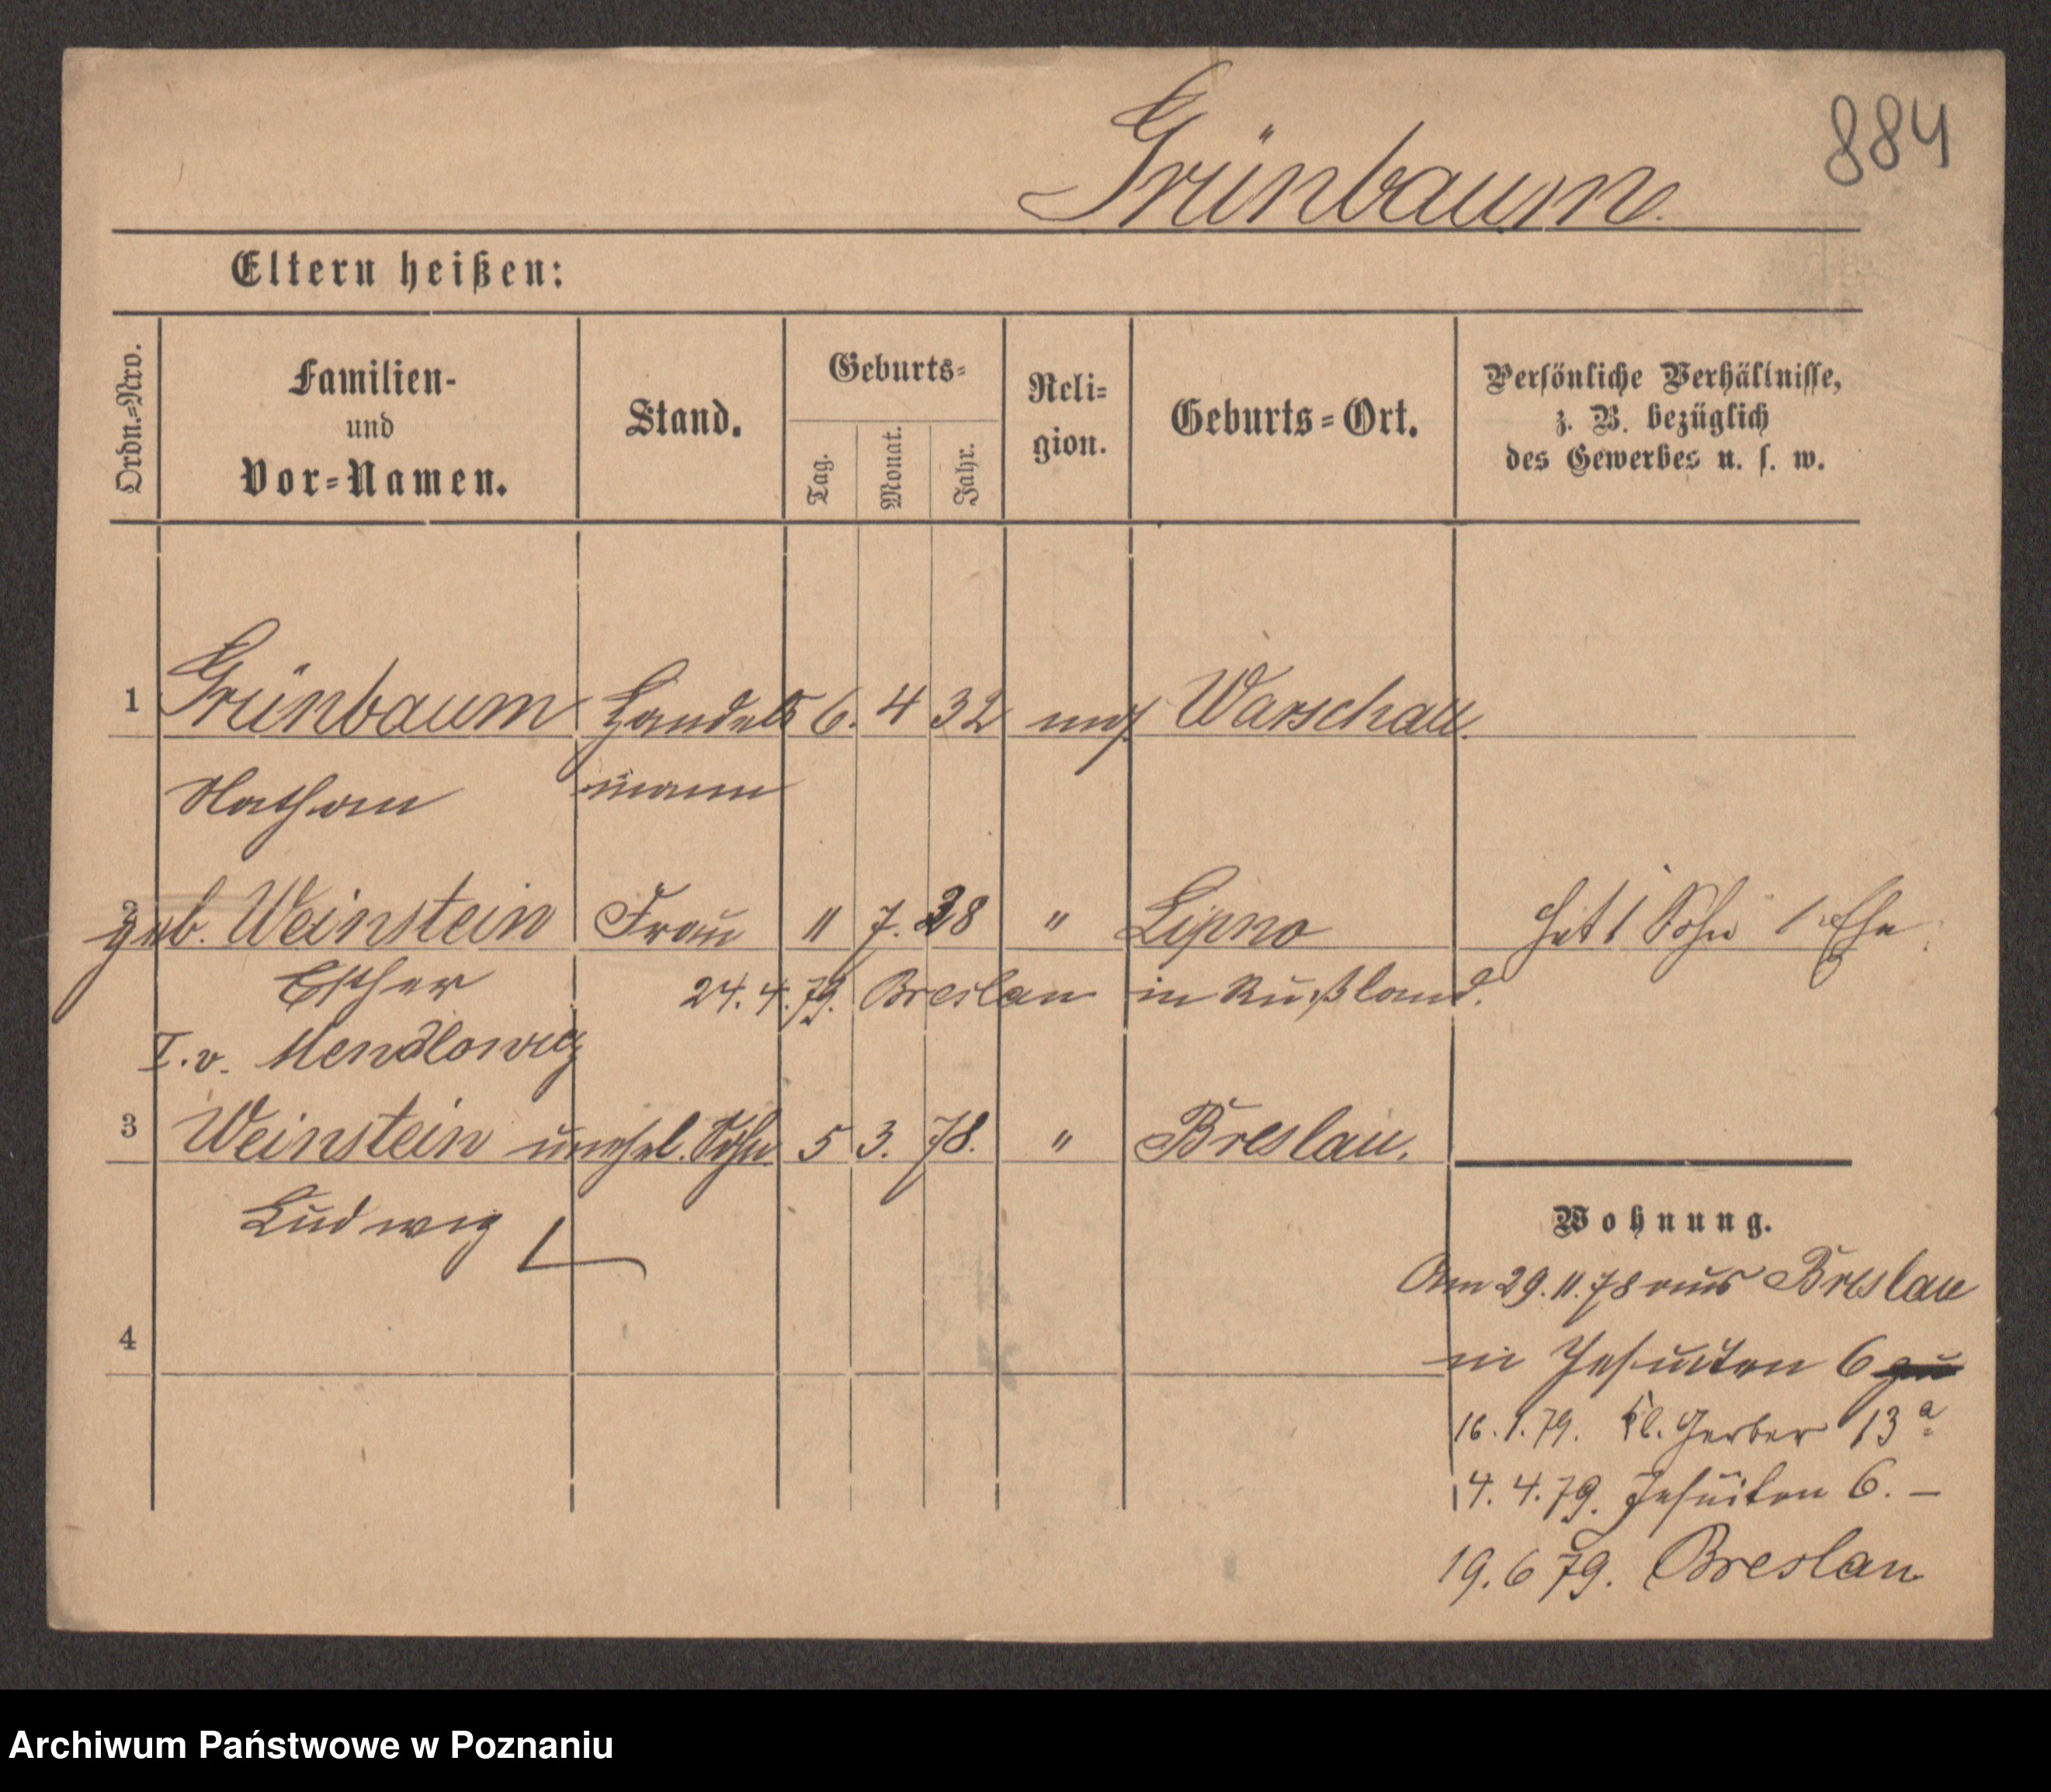 884
Grünbaum.
Eltern heißen:
Ordn.=Nro.
Familien-
und
Vor=Namen.
Stand.
Geburts=
Tag.
Monat.
Jahr.
Reli=
gion.
Geburts=Ort.
Persönliche Verhältnisse,
z. B. bezüglich
des Gewerbes u. s. w.
1 Grünbaum Handels 6. 4 32 mos Warschau.
Nathan mann
2 geb. Weinstein Frau " 7. 38 " Lipno hat 1 Sohn 1 Ehe
Esther 24. 4. 79. Breslau in Rußland.
I. v. Mendlowicz
3 Weinstein unehel. Sohn 5 3. 78. " Breslau.
Ludwig
Wohnung.
Am 29. 11. 78 aus Breslau
in Jesuiten 6 zu
4
16. 1. 79. kl. Gerber 13 a
4. 4. 79. Jesuiten 6. –
19. 6 79. Breslau
Archiwum Państwowe w Poznaniu